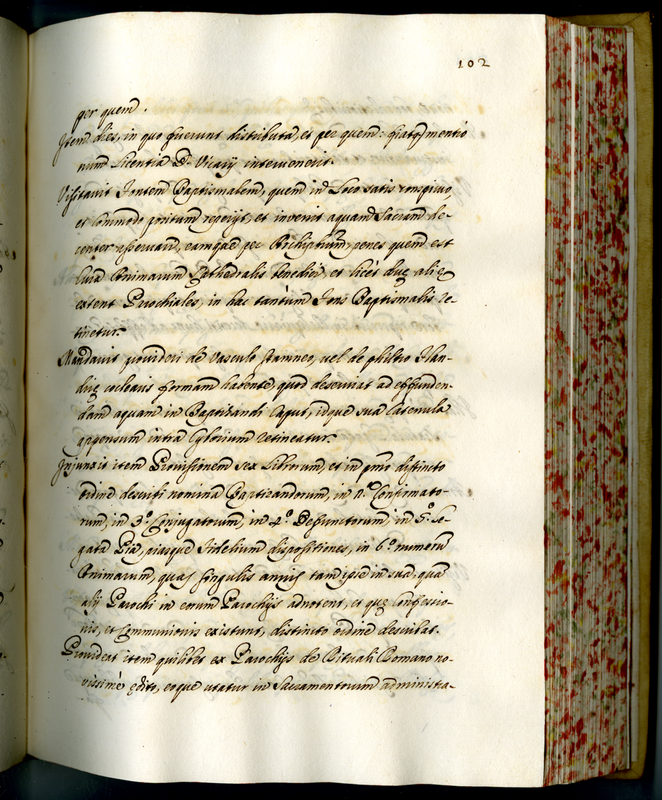 102
per quem.
Item dies, in quo fuerunt distributa, et per quem: fiatq mentio
num licentia D. Vicarij intervenerit.
Visitavit Fontem Baptismalem, quem in loco satis conspicuo,
et commodo positum reperijt, et invenit aquam Sacram de-
center asservari, eamque per Archiptrum, penes quem est
cura Animarum Cathedralis benedici, et licet duę alię
extent Parochiales, in hac tantum Fons Baptismalis re-
tinetur.
Mandavit provideri de vasculo stamneo, vel de
cocleais formam habente, quod deserviat ad effunden-
dam aquam in Baptizandi Caput, idque sua catenula
appensum intra Cyborium retineatur.
Injunxit item Provisionem sex Librorum, et in pmo distincto
ordine describi nomina Baptizandorum, in 2.º Confirmato-
rum, in 3.º Conjugatorum, in 4.º Defunctorum, in 5.º Le-
gata Pia, piasque Fidelium dispositiones, in 6.º numerum
Animarum, quas singulis annis tam ipse in sua, quam
alij Parochi in eorum Parochijs adnotent, et quę Confessio-
nis, et Communionis existunt, distincto ordine describat.
Provideat item quilibet ex Parochijs de Rituali Romano no-
vissimè ędito, eoque utatur in Sacramentorum administra-